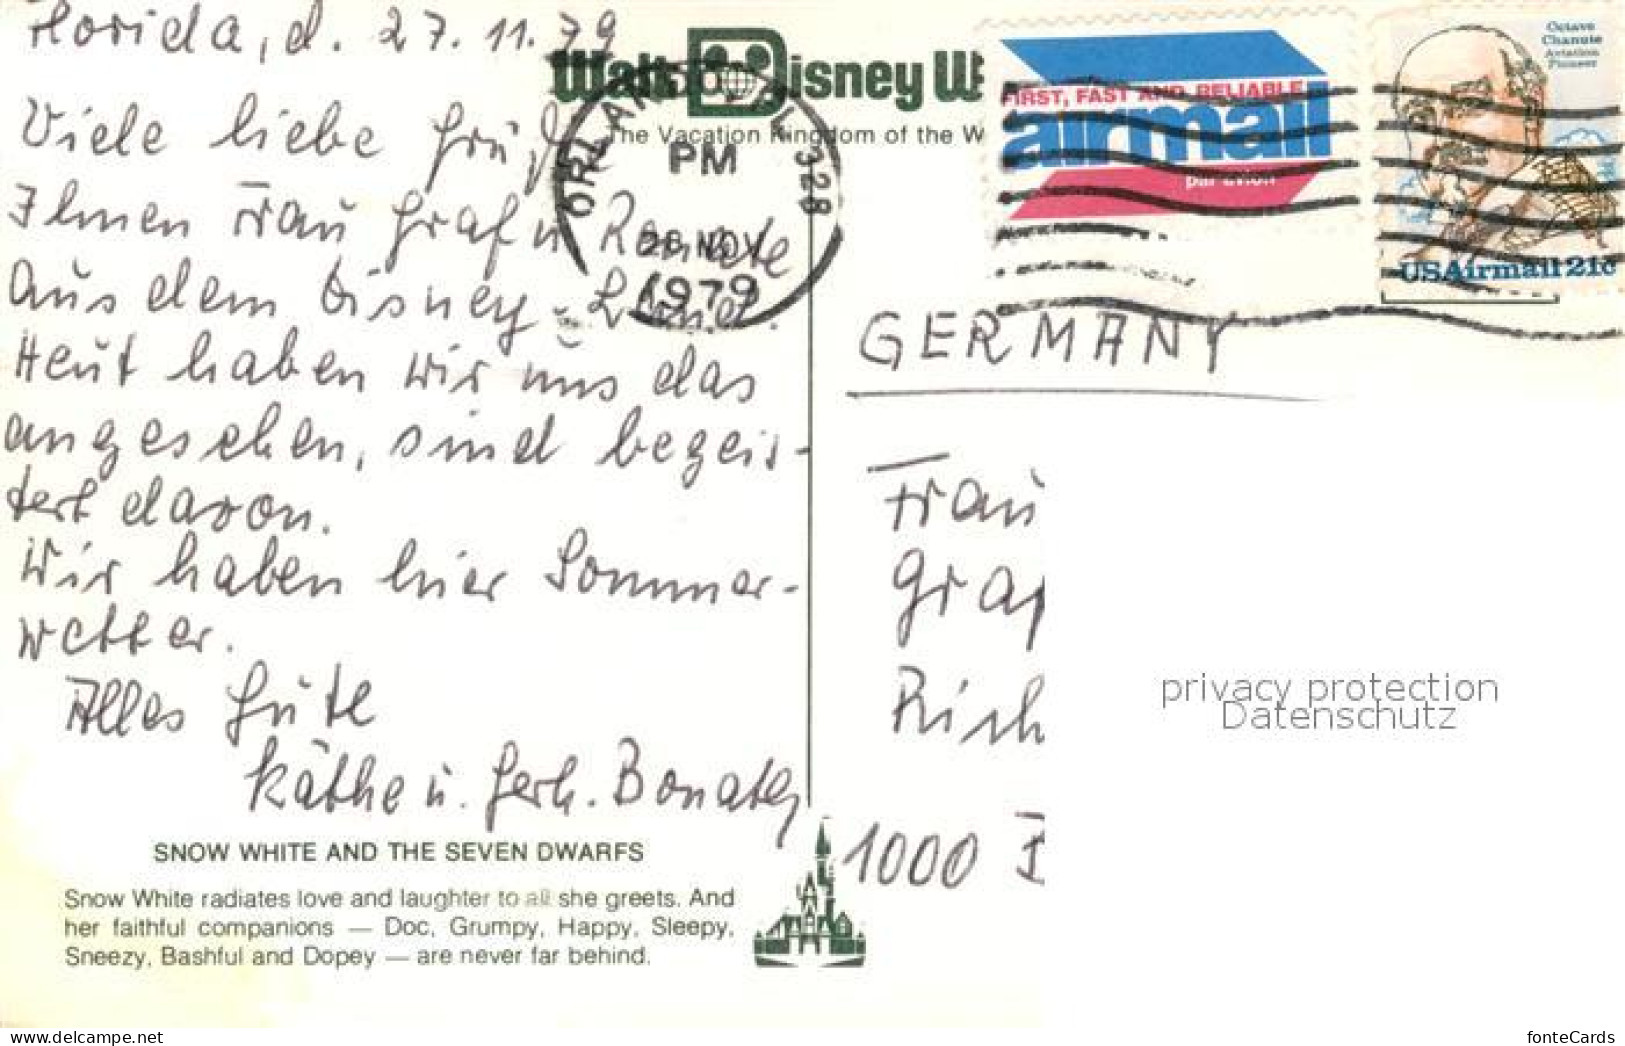 Florida, d. 27.11.79
Walt Disney W
The Vacation Kingdom of the W
ORLANDO, FL 328
PM
28 NOV
1979
FIRST, FAST AND RELIABLE
airmail
par avion
Octave
Chanute
Aviation
Pioneer
USAirmail 21c
Viele liebe Grüße
Ihnen Frau Graf u. Renate
aus dem Disney-Land.
Heut haben wir uns das
angesehen, sind begeis-
tert davon.
Wir haben hier Sommer-
wetter.
Alles Gute
Käthe u. Gerh.
SNOW WHITE AND THE SEVEN DWARFS
Snow White radiates love and laughter to all she greets. And
her faithful companions — Doc, Grumpy, Happy, Sleepy,
Sneezy, Bashful and Dopey — are never far behind.
GERMANY
Frau
Graf
Rich
1000
privacy protection
Datenschutz
www.delcampe.net
fonteCards